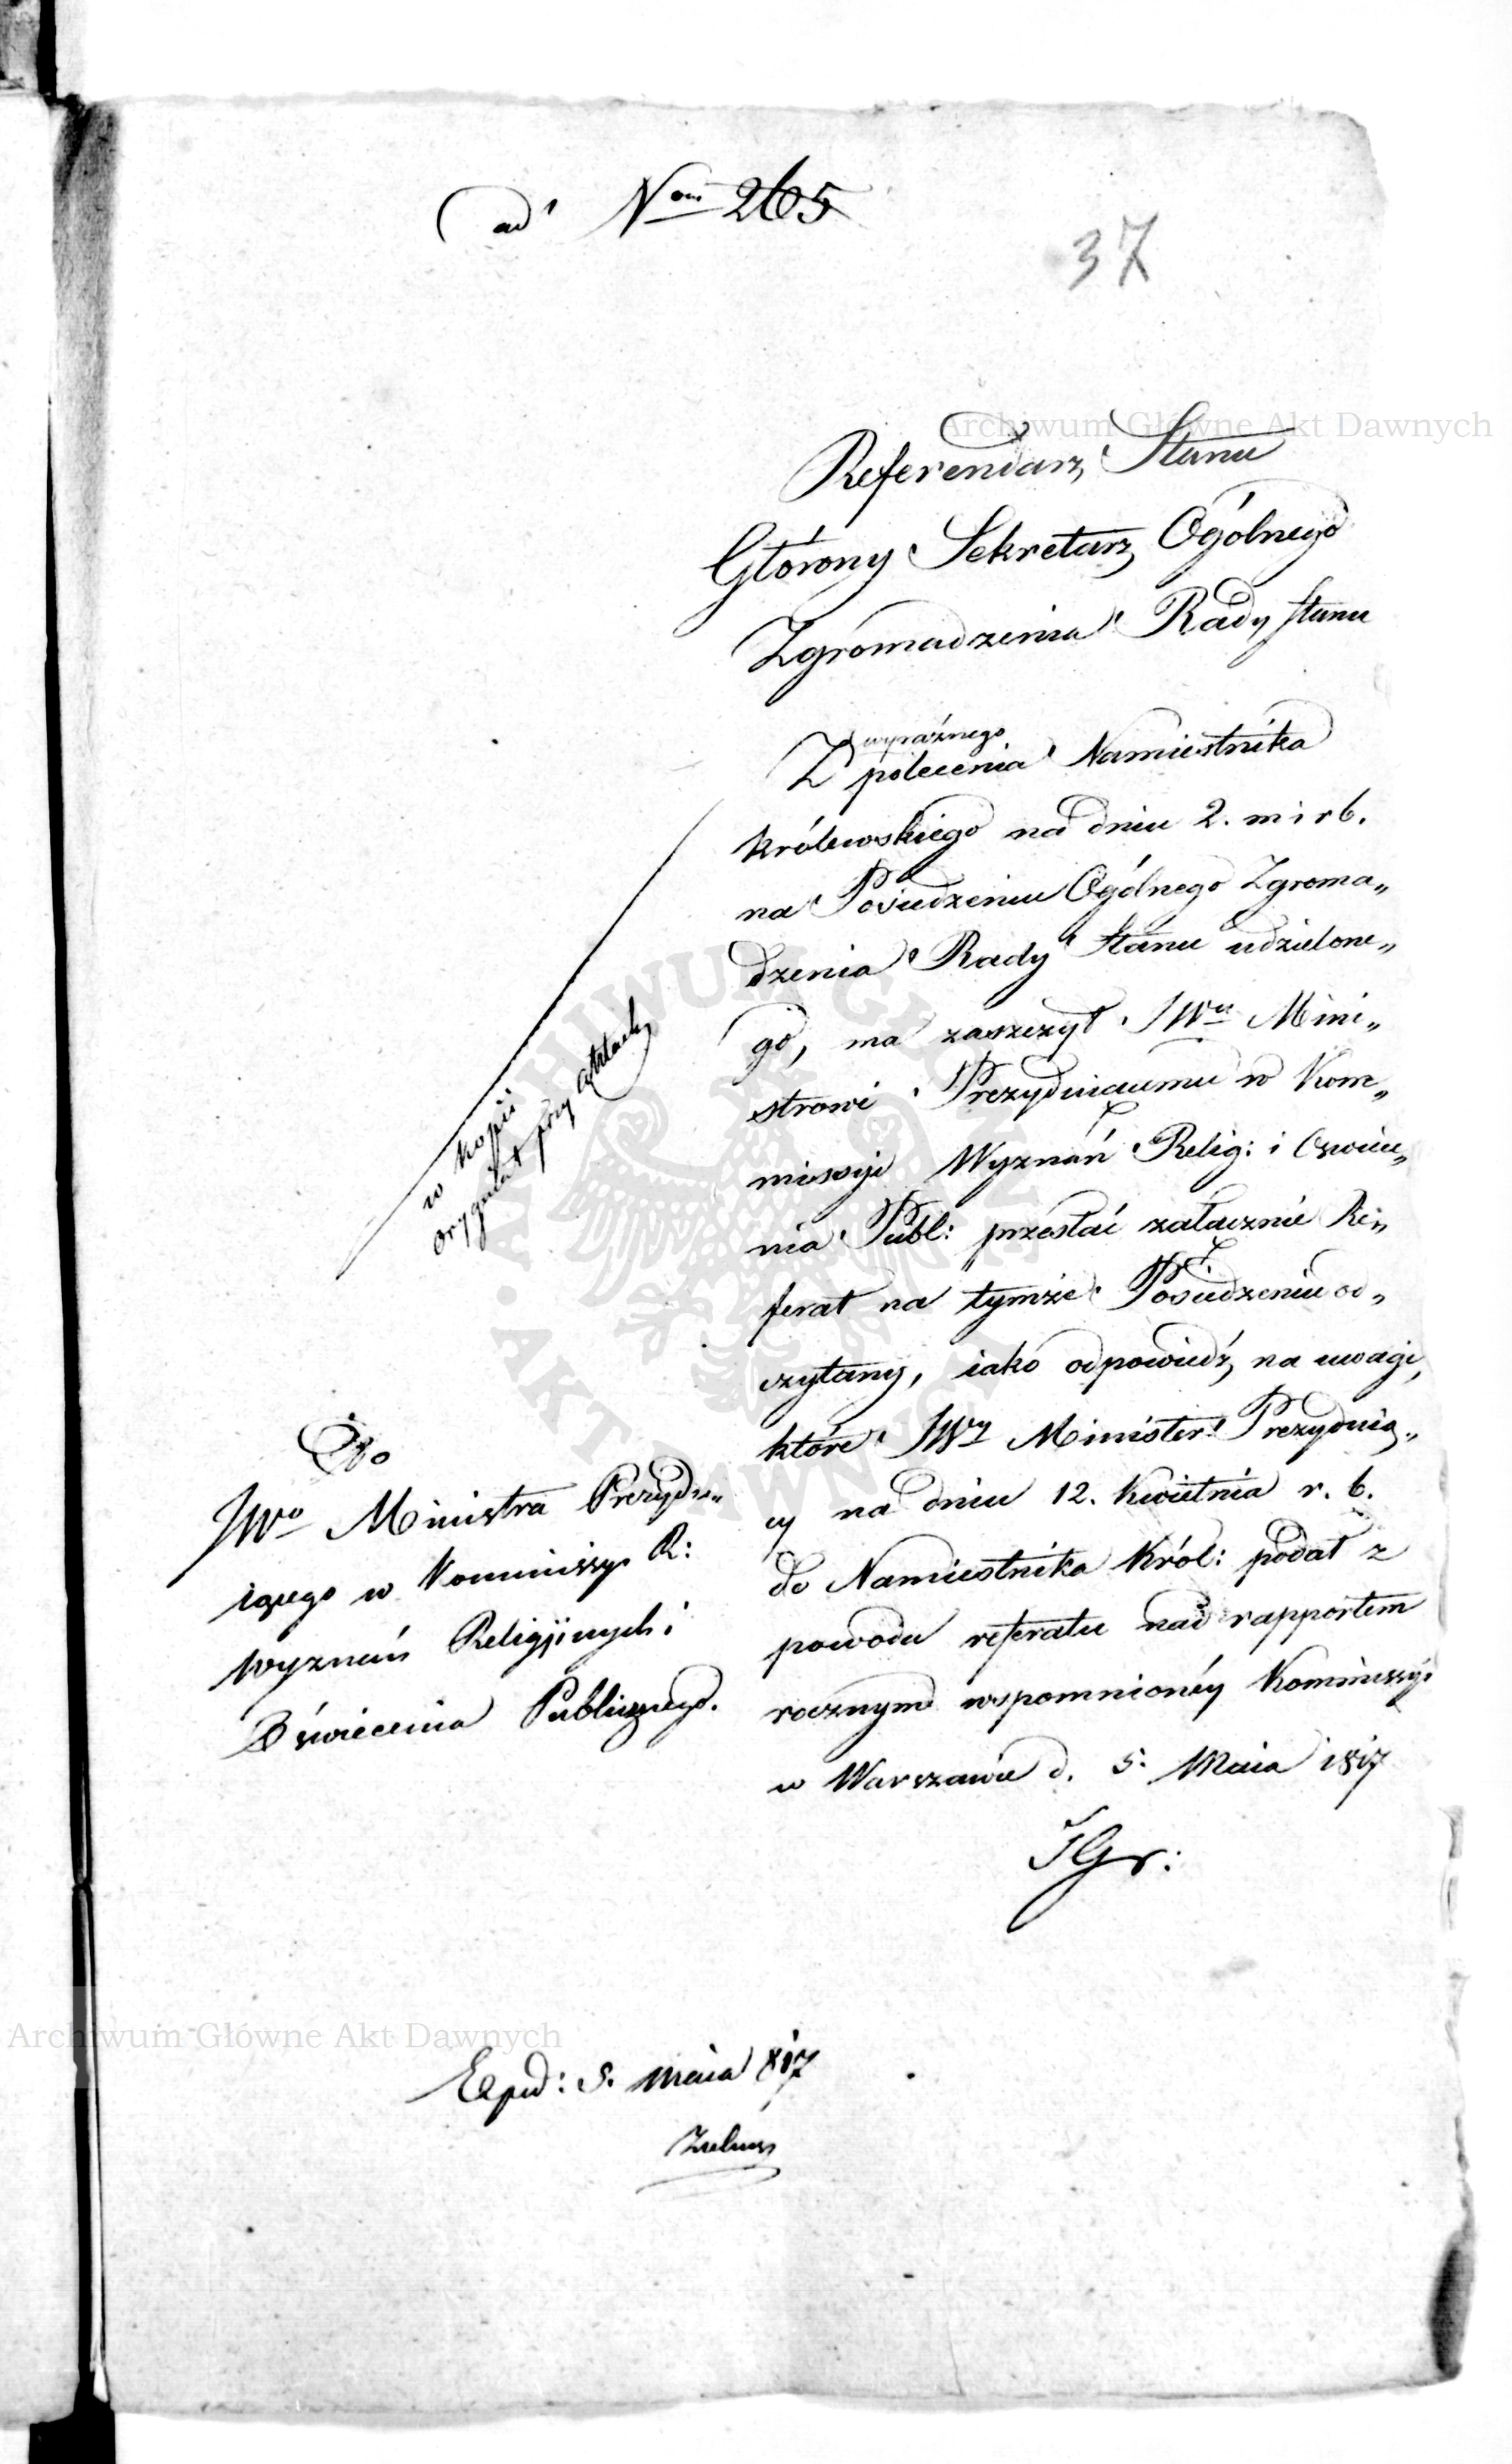 ad Num 265
37
Archiwum Główne Akt Dawnych
Referendarz Stanu
Główny Sekretarz Ogólnego
Zgromadzenia Rady Stanu
wyraźnego
Z polecenia Namiestnika
Królewskiego na dniu 2. m i r b.
na Posiedzeniu Ogólnego Zgroma„
dzenia Rady Stanu udzielone„
go, ma zaszczyt JWu Mini„
strowi Prezyduiącemu w Kom„
missyi Wyznań Relig: i Oświe„
nia Publ: przesłać załącznie Re„
ferat na tymże Posiedzeniu od„
czytany, iako odpowiedź na uwagi,
które JWy Minister Prezyduią„
cy na dniu 12. Kwietnia r. b.
do Namiestnika Król: podał z
powodu referatu nad rapportem
rocznym wspomnionéy Kommissyi
w Warszawie d. 5. Maia 1817
JGr:
w kopii
Oryginał przy aktach
Do
JWo Ministra Prezydu„
iącego w Kommissyi R:
Wyznań Religijnych i
Oświecenia Publicznego.
Archiwum Główne Akt Dawnych
Expd: 5. Maia 817
ARCHIWUM GŁÓWNE AKT DAWNYCH